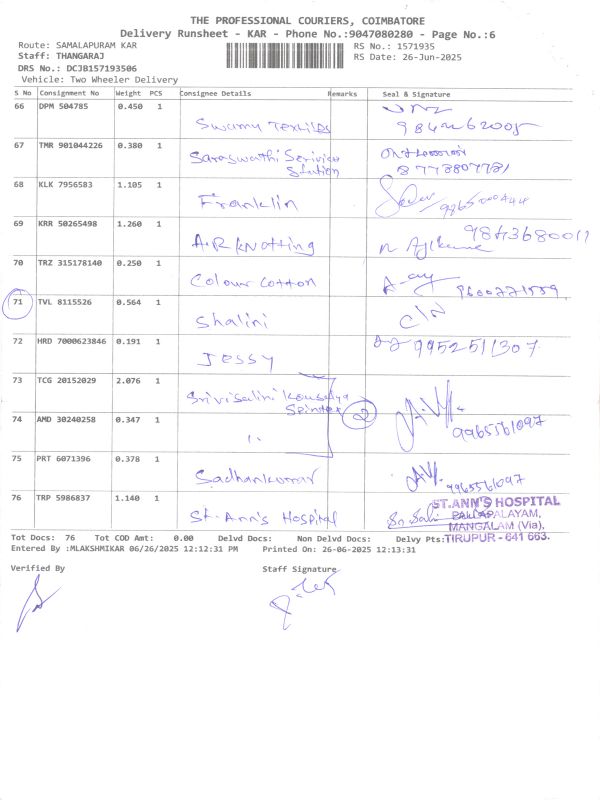 THE PROFESSIONAL COURIERS, COIMBATORE
Delivery Runsheet - KAR - Phone No.:9047080280 - Page No.:6
Route: SAMALAPURAM KAR RS No.: 1571935
Staff: THANGARAJ RS Date: 26-Jun-2025
DRS No.: DCJB157193506
Vehicle: Two Wheeler Delivery
S No Consignment No Weight PCS Consignee Details Remarks Seal & Signature
66 DPM 504785 0.450 1
Swamy Textiles
67 TMR 901044226 0.380 1
Saraswathi
8778807781
68 KLK 7956583 1.105 1
Franklin
69 KRR 50265498 1.260 1
A.R knotting
70 TRZ 315178140 0.250 1
Colour cotton
71 TVL 8115526 0.564 1
Shalini
72 HRD 7000623846 0.191 1 9952511307
Jessy
73 TCG 20152029 2.076 1
2
74 AMD 30240258 0.347 1 9965561097
75 PRT 6071396 0.378 1
Sadhankumar 9965561097
76 TRP 5986837 1.140 1
St. Ann's Hospital
ST.ANN'S HOSPITAL
PALLAPALAYAM,
MANGALAM (Via),
TIRUPUR - 641 663.
Tot Docs: 76 Tot COD Amt: 0.00 Delvd Docs: Non Delvd Docs: Delvy Pts:
Entered By :MLAKSHMIKAR 06/26/2025 12:12:31 PM Printed On: 26-06-2025 12:13:31
Verified By Staff Signature